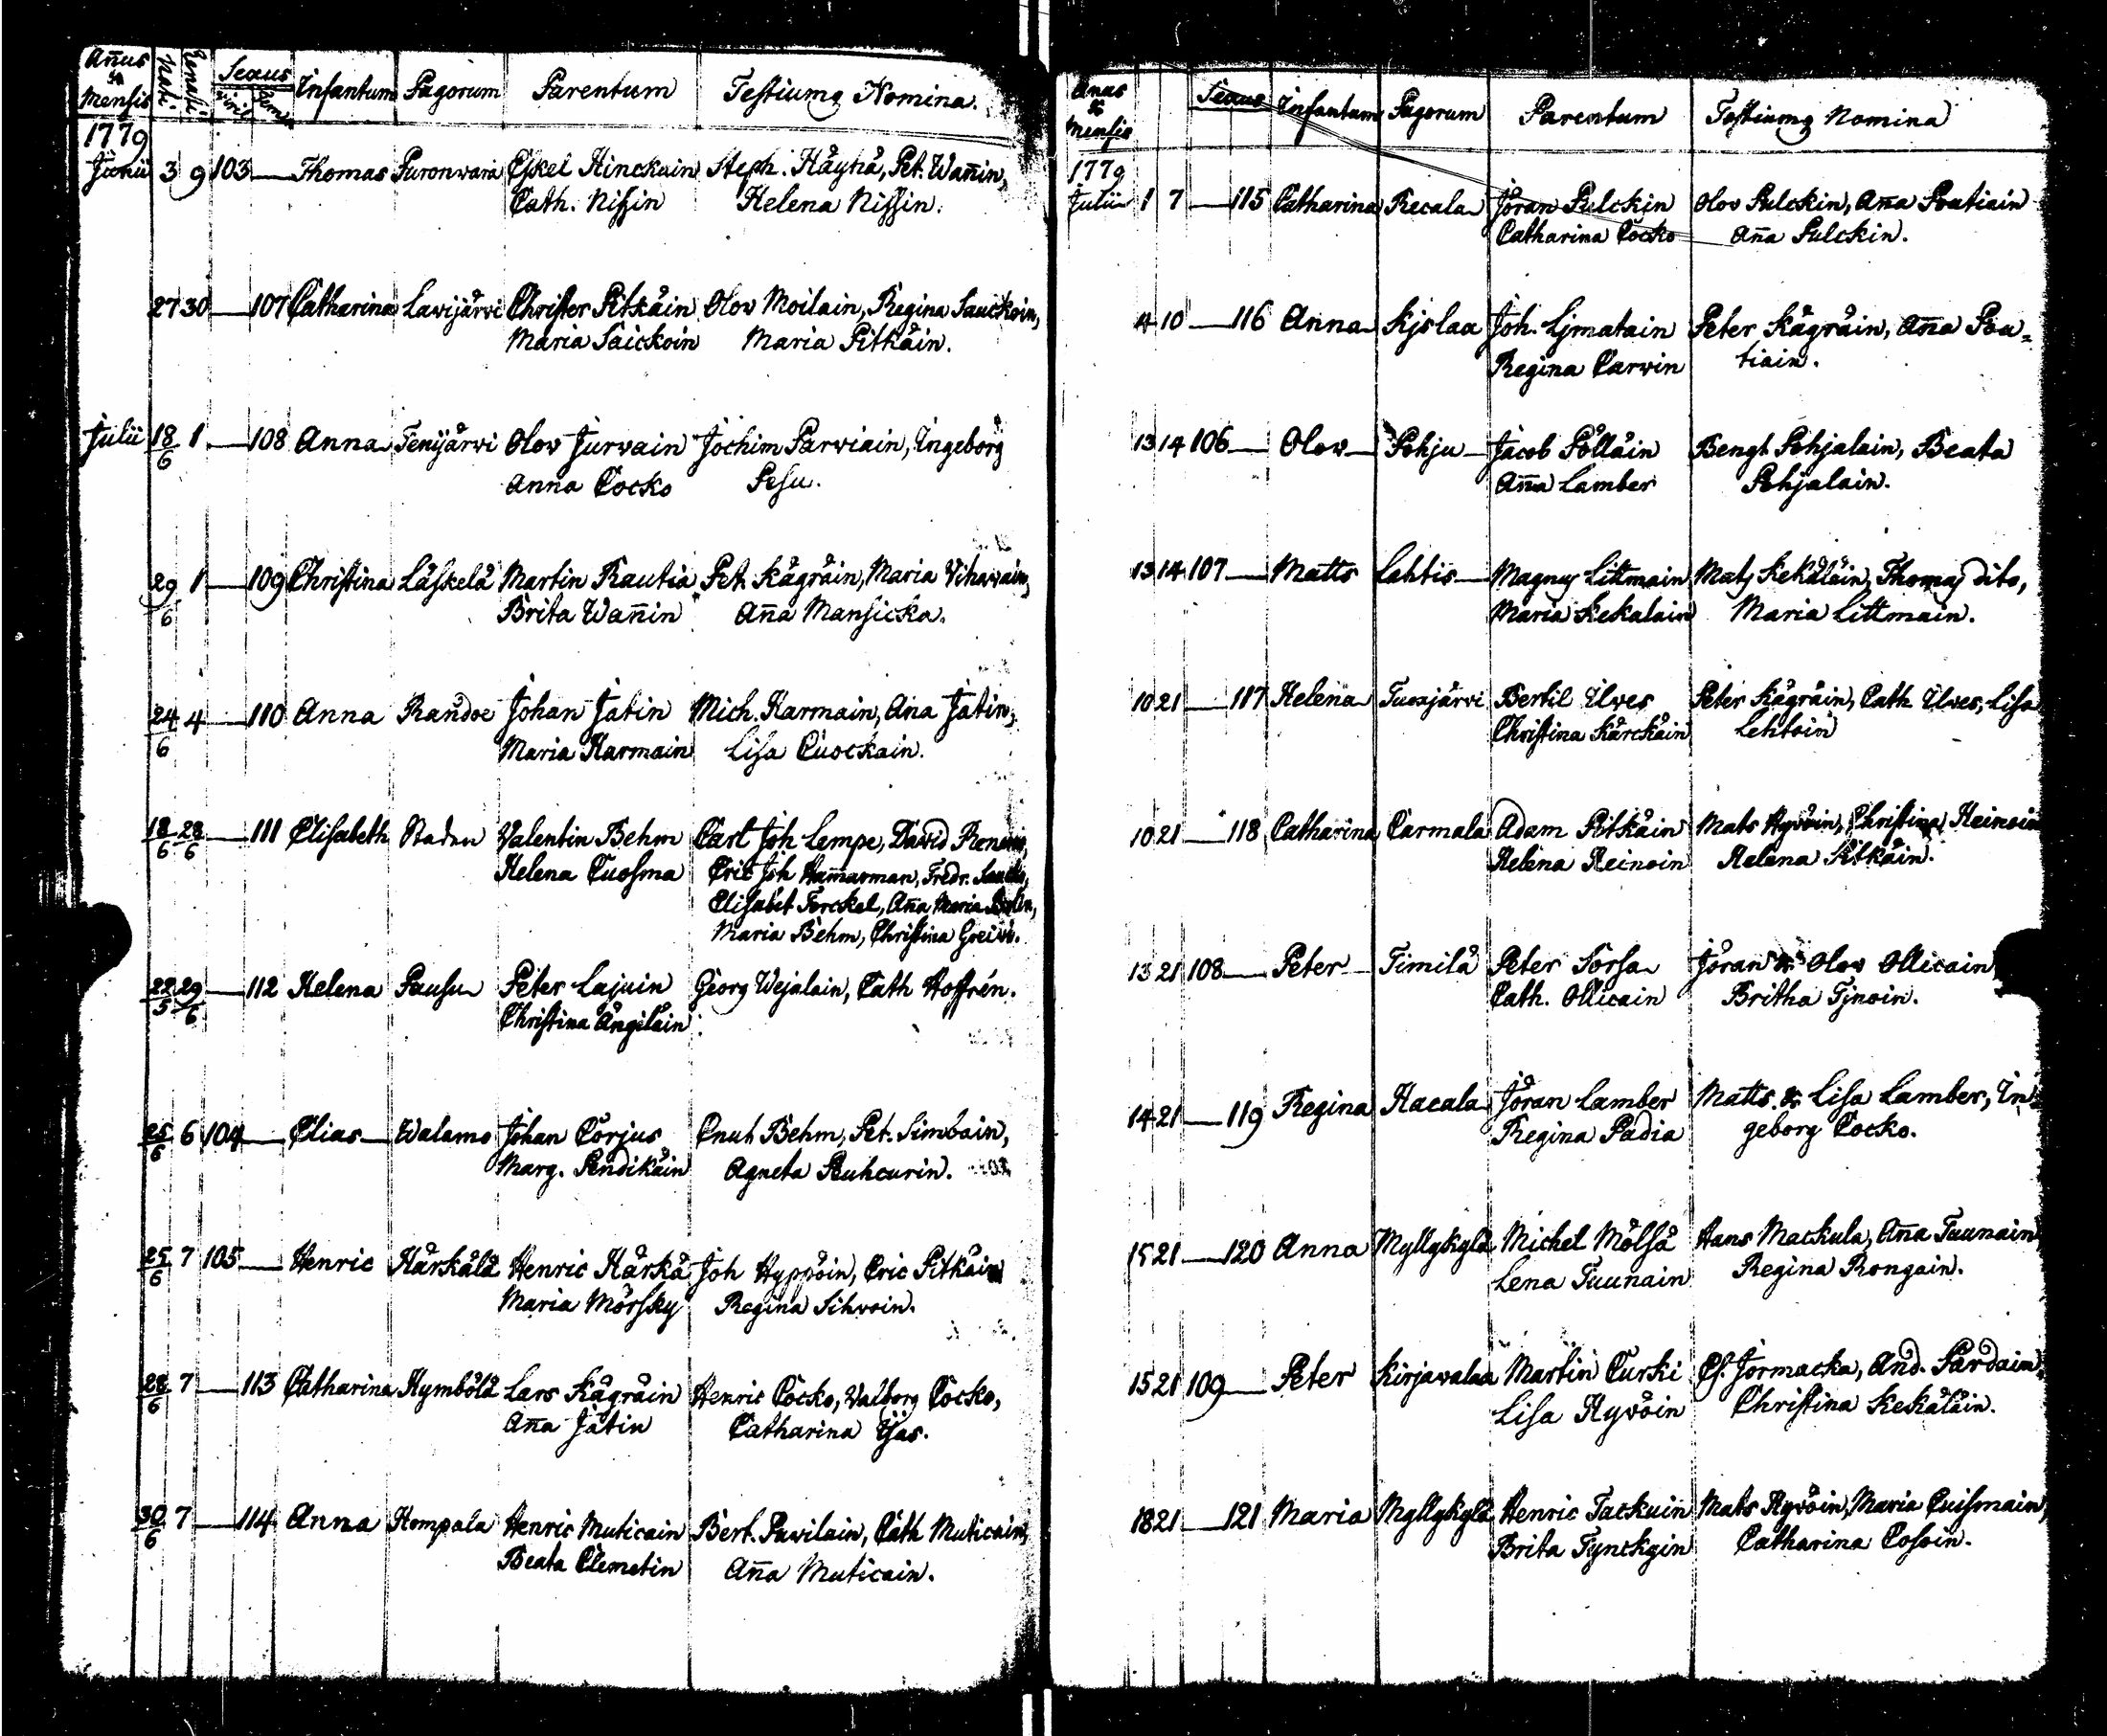 Añus & Mensis Nati. Renati. Sexus viril. fem. Infantum Pagorum Parentum Testiumq Nomina.
1779
Junii 3 9 103 — Thomas Puronwara Eskel Hinckain Steph. Häyhä, Pet. Wañin,
Cath. Nissin Helena Nissin.
27 30 — 107 Catharina Lavijärvi Christer Pitkäin Olov Moilain, Regina Sauckoin,
Maria Saickoin Maria Pitkäin.
Julii 18/6 1 — 108 Anna Tenijärvi Olov Jurvain Jochim Parviain, Ingeborg
Anna Cocko Pesu.
29/6 1 — 109 Christina Läskelä Martin Rautia Pet. Kägräin, Maria Vihavain,
Brita Wañin Aña Mansicka.
24/6 4 — 110 Anna Randoe Johan Jatin Mich. Karmain, Aña Jatin,
Maria Karmain Lisa Cuockain.
18/6 28/6 — 111 Elisabeth Staden Valentin Behm Carl Joh Lempe, David
Helena Cuosma Eric Joh Hamarman, Fredr.
Elisabet Forckel, Aña Maria
Maria Behm, Christina
22/5 29/6 — 112 Helena Pausu Peter Lajuin Georg Wejalain, Cath Hoffrén.
Christina Ängiläin
25/6 6 104 — Elias Walamo Johan Corjus Cnut Behm, Pet. Simbain,
Marg. Pendikäin Agneta Ruhcurin.
25/6 7 105 — Henric Härkälä Henric Härkä Joh Hyppöin, Eric Pitkäin
Maria Mörsky Regina Sihvoin.
28/6 7 — 113 Catharina Hymbölä Lars Kägräin Henric Cocko, Valborg Cocko,
Aña Jätin Catharina Ijas.
30/6 7 — 114 Anna Hompala Henric Muticain Bert. Pavilain, Cath Muticain,
Beata Clemetin Aña Muticain.
Anus & Mensis Sexus Infantum Pagorum Parentum Testiumq Nomina
1779
Julii 1 7 — 115 Catharina Recala Jöran Pulckin Olov Pulckin, Aña Poutiain
Catharina Cocko Aña Pulckin.
4 10 — 116 Anna Kjslaa Joh. Ljmatain Peter Kägräin, Aña Pou=
Regina Carvin tiain.
13 14 106 — Olow Pohju Jacob Pölläin Bengt Pohjalain, Beata
Aña Lamber Pohjalain.
13 14 107 — Matts Lahtis Magnus Littmain Mats Kekäläin, Thomas dito,
Maria Kekalain Maria Littmain.
10 21 — 117 Helena Tuoxjärvi Bertil Ilves Peter Kägräin, Cath Ilves, Lisa
Christina Kärckäin Lehtoin
10 21 — 118 Catharina Carmala Adam Pitkäin Mats Hyvöin, Christina Heinoin
Helena Heinoin Helena Pitkäin.
13 21 108 — Peter Timilä Peter Sorsa Jöran & Olov Ollicain
Cath. Ollicain Britha Tjnoin.
14 21 — 119 Regina Hacala Jöran Lamber Matts. & Lisa Lamber, In=
Regina Padia geborg Cocko.
15 21 — 120 Anna Myllykylä Michel Mölsä Hans Mackula, Aña Tuunain
Lena Tuunain Regina Rongain.
15 21 109 — Peter Kirjavalaa Martin Curki Es. Jormacka, And. Pardain,
Lisa Hyvöin Christina Kekäläin.
18 21 — 121 Maria Myllykylä Henric Tackuin Mats Hyvöin, Maria Cuismain,
Brita Tynckyin Catharina Cosoin.